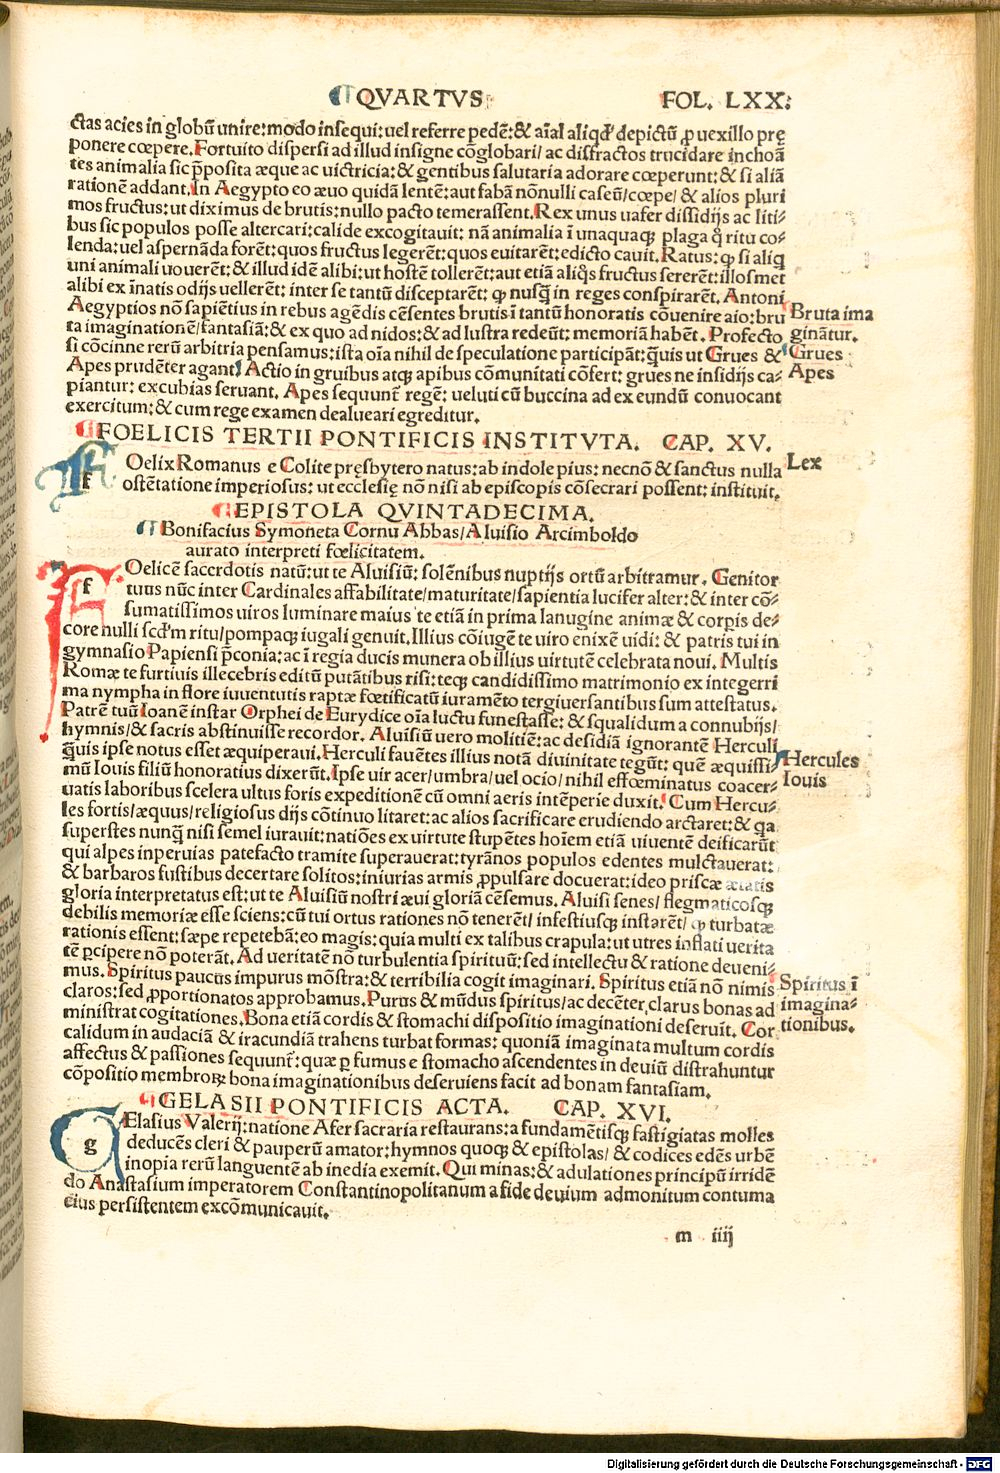 QVARTVS FOL. LXX.
ctas acies in globũ unire: modo insequi: uel referre pedẽ: & aĩal aliqđ depictũ ꝓ uexillo prę
ponere cœpere. Fortuito dispersi ad illud insigne cõglobari/ ac distractos trucidare inchoã
tes animalia sic p̃posita æque ac uictricia: & gentibus salutaria adorare cœperunt: & si aliã
rationẽ addant. In Aegypto eo æuo quidã lentẽ: aut fabã nõnulli caseũ/ cœpe/ & alios pluri
mos fructus: ut diximus de brutis: nullo pacto temerassent. Rex unus uafer dissidijs ac liti-
bus sic populos posse altercari: calide excogitauit: nã animalia ĩ unaquaqꝫ plaga q̃ ritu co-
lenda: uel aspernãda forẽt: quos fructus legerẽt: quos euitarẽt: edicto cauit. Ratus: ꝙ si aliq
uni animali uouerẽt: & illud idẽ alibi: ut hostẽ tollerẽt: aut etiã aliq̃s fructus sererẽt: illosmet
alibi ex ĩnatis odijs uellerẽt: inter se tantũ disceptarẽt: ꝙ nusq̃ in reges conspirarẽt. Antoni
Aegyptios nõ sapiẽtius in rebus agẽdis cẽsentes brutis ĩ tantũ honoratis cõuenire aio: bru
ta imaginationẽ/ fantasiã: & ex quo ad nidos: & ad lustra redeũt: memoriã habẽt. Profecto
si cõcinne rerũ arbitria pensamus: ista oĩa nihil de speculatione participãt: q̃uis ut Grues &
Apes prudẽter agant. Actio in gruibus atqꝫ apibus cõmunitati cõfert: grues ne insidijs ca-
piantur: excubias seruant. Apes sequunt̃ regẽ: ueluti cũ buccina ad ex eundũ conuocant
exercitum: & cum rege examen dealueari egreditur.
Bruta ima
ginãtur.
Grues
Apes
FOELICIS TERTII PONTIFICIS INSTITVTA. CAP. XV.
f Oelix Romanus e Colite pręsbytero natus: ab indole pius: necnõ & sanctus nulla
ostẽtatione imperiosus: ut ecclesię nõ nisi ab episcopis cõsecrari possent: instituit.
Lex
EPISTOLA QVINTADECIMA.
Bonifacius Symoneta Cornu Abbas/ Aluisio Arcimboldo
aurato interpreti fœlicitatem.
f Oelicẽ sacerdotis natũ: ut te Aluisiũ: solẽnibus nuptijs ortũ arbitramur. Genitor
tuus nũc inter Cardinales affabilitate/ maturitate/ sapientia lucifer alter: & inter cõ-
sumatissimos uiros luminare maius te etiã in prima lanugine animæ & corpis de-
core nulli scđm ritu/ pompaqꝫ iugali genuit. Illius cõiugẽ te uiro enixẽ uidi: & patris tui in
gymnasio Papiensi p̃conia: ac ĩ regia ducis munera ob illius uirtutẽ celebrata noui. Multis
Romæ te furtiuis illecebris editũ putãtibus risi: teqꝫ candidissimo matrimonio ex integerri
ma nympha in flore iuuentutis raptæ fœtificatũ iuramẽto tergiuersantibus sum attestatus.
Patrẽ tuũ Ioanẽ instar Orphei de Eurydice oĩa luctu funestasse: & squalidum a connubijs/
hymnis/ & sacris abstinuisse recordor. Aluisiũ uero molitiẽ: ac desidiã ignorantẽ Herculi
q̃uis ipse notus esset æquiperaui. Herculi fauẽtes illius notã diuinitate tegũt: quẽ æquissi-
mũ Iouis filiũ honoratius dixerũt. Ipse uir acer/ umbra/ uel ocio/ nihil effœminatus coacer-
uatis laboribus scelera ultus foris expeditionẽ cũ omni aeris intẽperie duxit. Cum Hercu-
les fortis/ æquus/ religiosus dijs cõtinuo litaret: ac alios sacrificare erudiendo arctaret: & qa
superstes nunq̃ nisi semel iurauit: natiões ex uirtute stupẽtes hoĩem etiã uiuentẽ deificarũt
qui alpes inperuias patefacto tramite superauerat: tyrãnos populos edentes mulctauerat:
& barbaros fustibus decertare solitos: iniurias armis ꝓpulsare docuerat: ideo priscæ ætatis
gloria interpretatus est: ut te Aluisiũ nostri æui gloriã cẽsemus. Aluisi senes/ flegmaticosqꝫ
debilis memoriæ esse sciens: cũ tui ortus rationes nõ tenerẽt/ infestiusqꝫ instarẽt/ ꝙ turbatæ
rationis essent: sæpe repetebã: eo magis: quia multi ex talibus crapula: ut utres inflati uerita
tẽ ꝑcipere nõ poterãt. Ad ueritatẽ nõ turbulentia spirituũ: sed intellectu & ratione deueni-
mus. Spiritus paucus impurus mõstra: & terribilia cogit imaginari. Spiritus etiã nõ nimis
claros: sed ꝓportionatos approbamus. Purus & mũdus spiritus/ ac decẽter clarus bonas ad
ministrat cogitationes. Bona etiã cordis & stomachi dispositio imaginationi deseruit. Cor
calidum in audaciã & iracundiã trahens turbat formas: quoniã imaginata multum cordis
affectus & passiones sequunt̃: quæ ꝑ fumus e stomacho ascendentes in deuiũ distrahuntur
cõpositio membroꝝ bona imaginationibus deseruiens facit ad bonam fantasiam.
Hercules
Iouis
Spiritus ĩ
imagina-
tionibus.
GELASII PONTIFICIS ACTA. CAP. XVI.
g Ælasius Valerij: natione Afer sacraria restaurans: a fundamẽtisqꝫ fastigiatas molles
deducẽs cleri & pauperũ amator: hymnos quoqꝫ & epistolas/ & codices edẽs urbẽ
inopia rerũ languentẽ ab inedia exemit. Qui minas: & adulationes principũ irridẽ
do Anastasium imperatorem Constantinopolitanum a fide deuium admonitum contuma
cius persistentem excõmunicauit.
m iiij
Digitalisierung gefördert durch die Deutsche Forschungsgemeinschaft - DFG